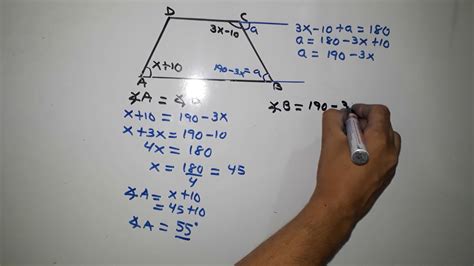 D C
3x-10 a
x+10 190-3x=a
A B
3x-10+a = 180
a = 180-3x+10
a = 190-3x
∡A = ∡
x+10 = 190-3x
x+3x = 190-10
4x = 180
x = 180/4 = 45
∡A = x+10
= 45+10
∡A = 55°
∡B = 190-3